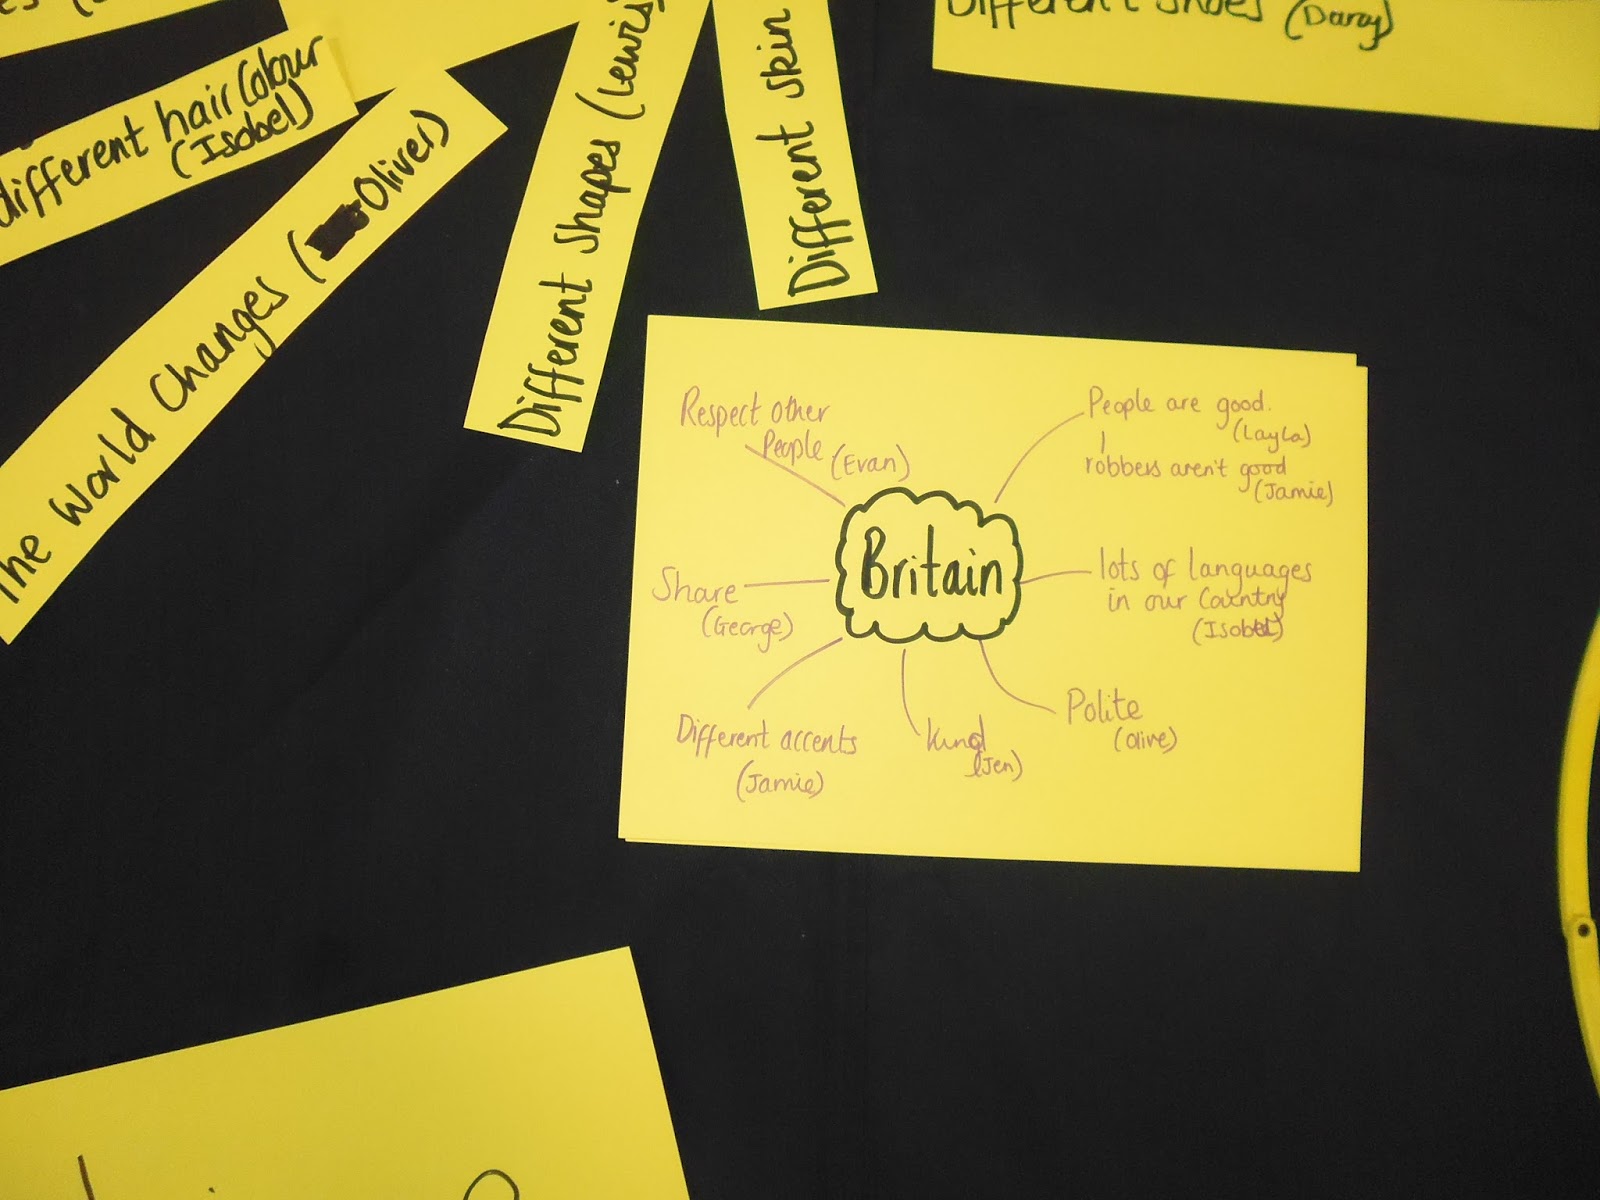 different hair Colour
(Isobel)
The World Changes (Oliver)
Different Shapes (Lewis)
Different skin
Different Shoes (Darcy)
Respect other
People (Evan)
People are good.
(Layla)
robbers aren't good
(Jamie)
Britain
Share
(George)
lots of languages
in our Country
(Isobel)
Different accents
(Jamie)
Kind
(Jen)
Polite
(Olive)